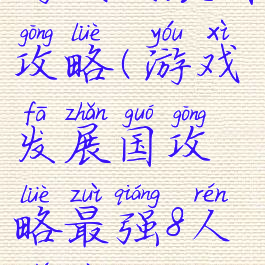 gōng lüè yóu xì
攻略(游戏
fā zhǎn guó gōng
发展国攻
lüè zuì qiáng rén
略最强8人